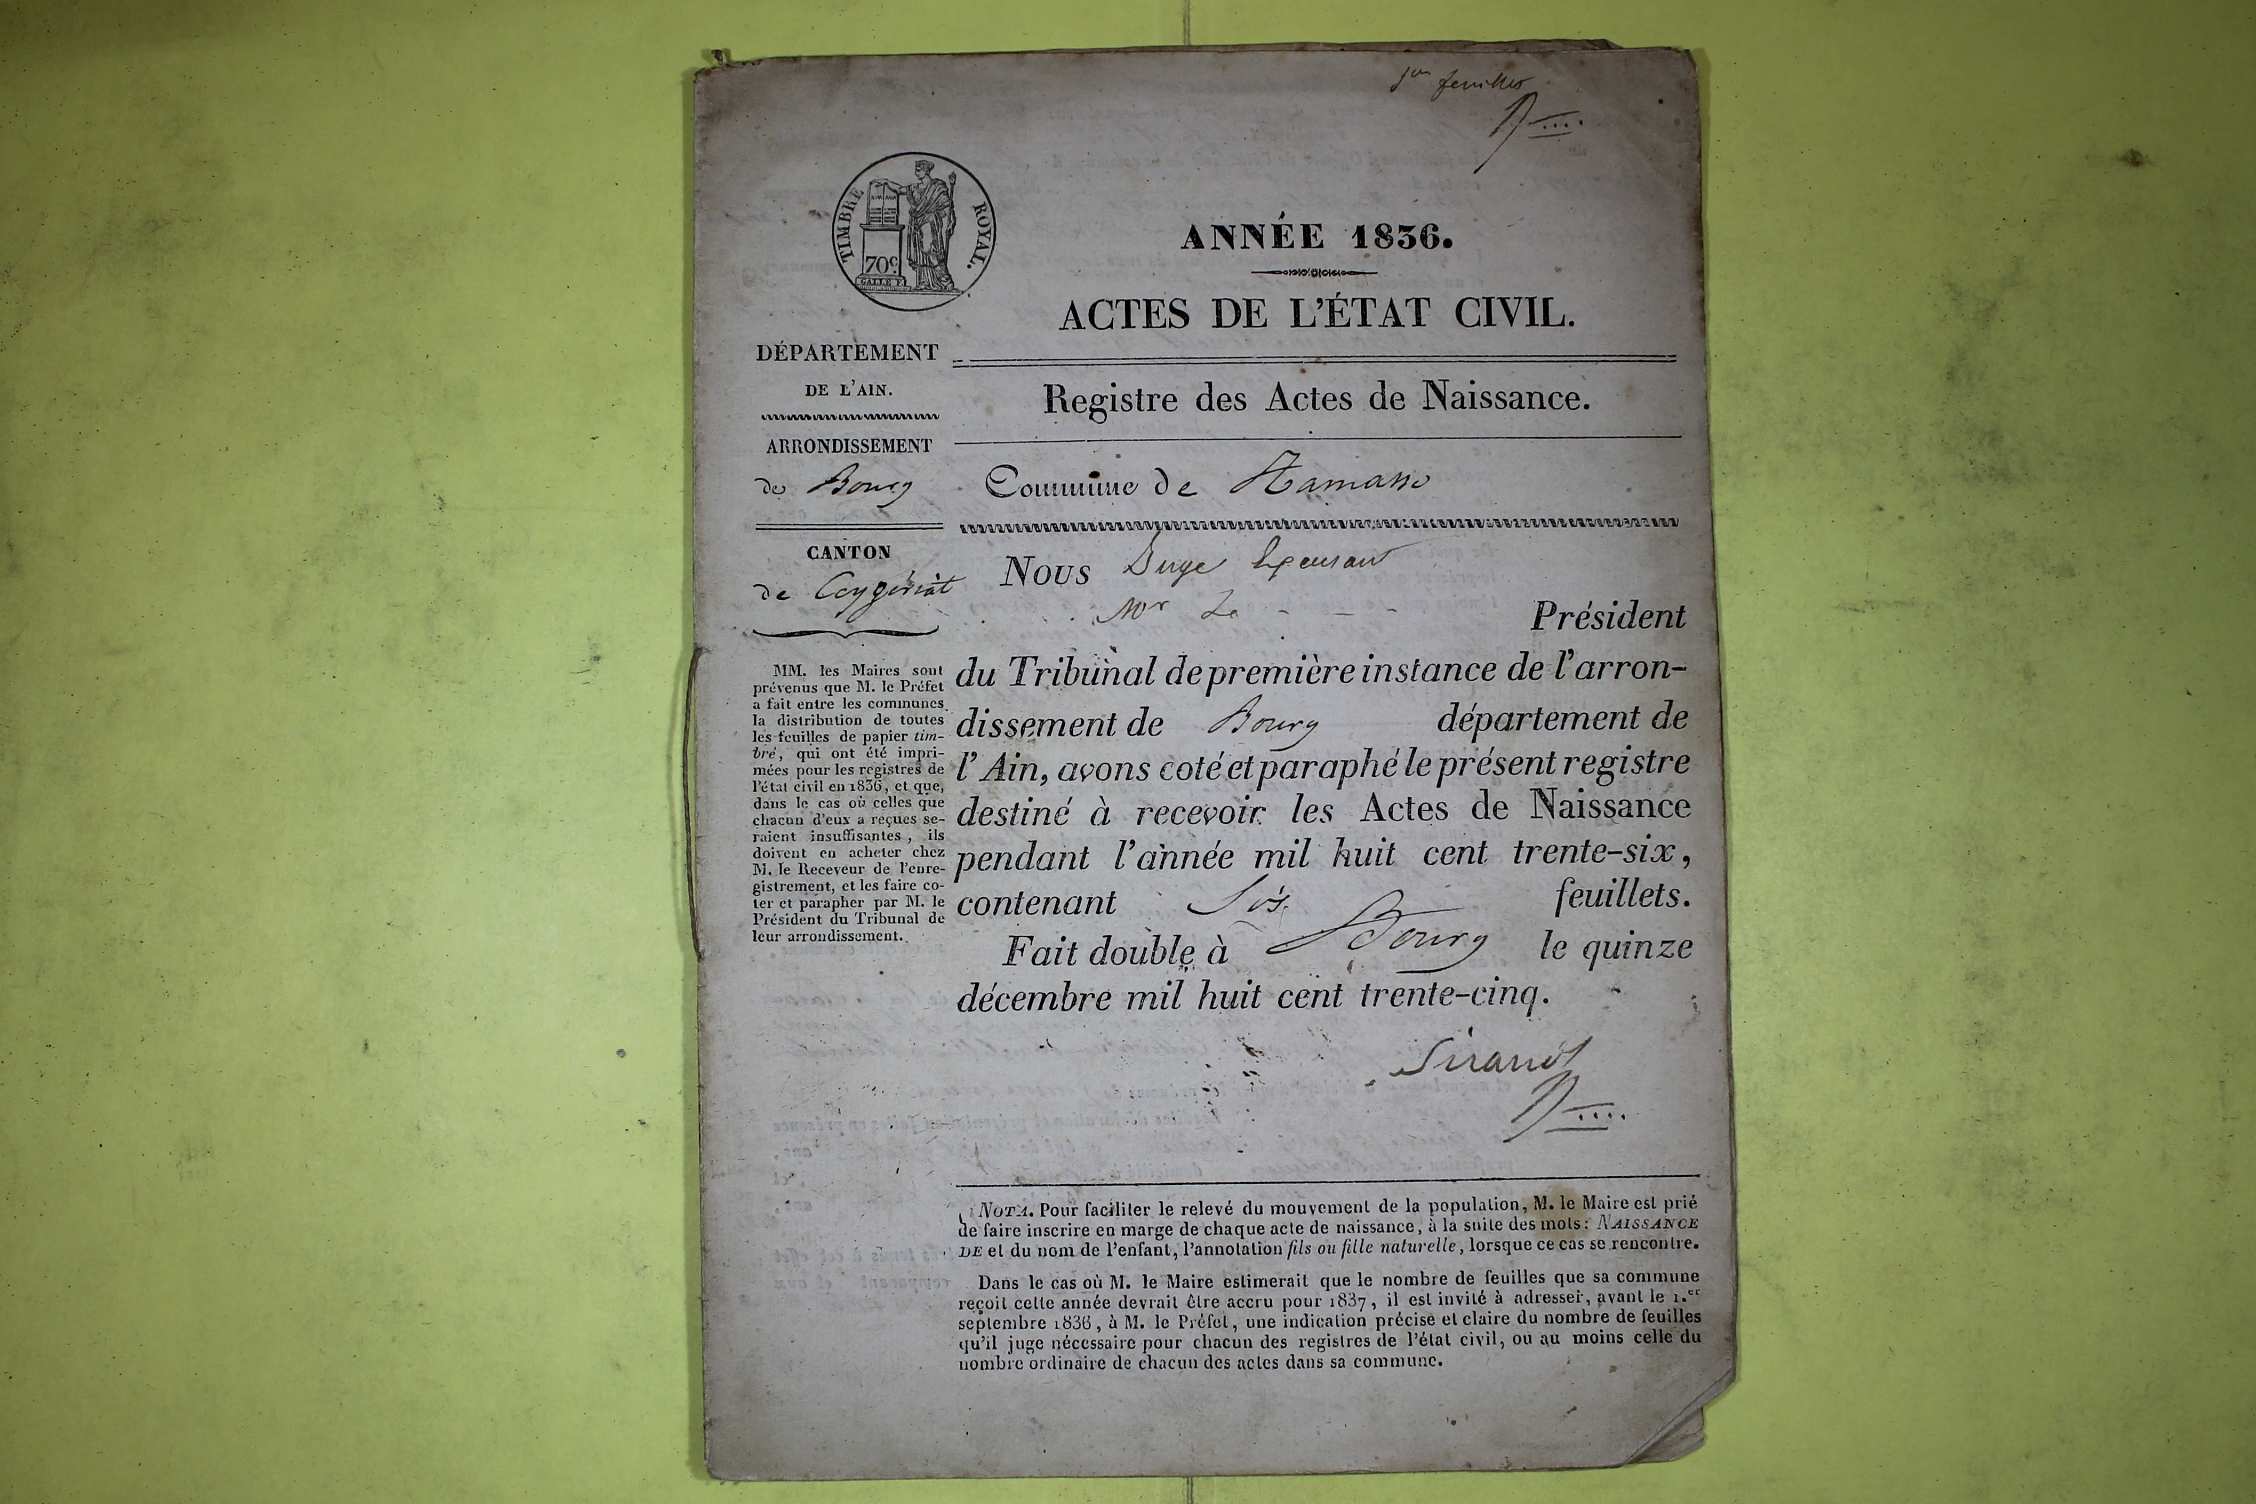 feuillet
TIMBRE ROYAL.
70c.
ANNÉE 1836.
ACTES DE L'ÉTAT CIVIL.
DÉPARTEMENT
DE L'AIN.
Registre des Actes de Naissance.
ARRONDISSEMENT
de Bourg
Commune de Ramasse
CANTON
de Ceyzériat
Nous Juge
Mr Le - - - Président
du Tribunal de première instance de l'arron-
dissement de Bourg département de
l'Ain, avons coté et paraphé le présent registre
destiné à recevoir les Actes de Naissance
pendant l'année mil huit cent trente-six,
contenant Six feuillets.
Fait double à Bourg le quinze
décembre mil huit cent trente-cinq.
MM. les Maires sont
prévenus que M. le Préfet
a fait entre les communes
la distribution de toutes
les feuilles de papier tim-
bré, qui ont été impri-
mées pour les registres de
l'état civil en 1836, et que,
dans le cas où celles que
chacun d'eux a reçues se-
raient insuffisantes, ils
doivent en acheter chez
M. le Receveur de l'enre-
gistrement, et les faire co-
ter et parapher par M. le
Président du Tribunal de
leur arrondissement.
NOTA. Pour faciliter le relevé du mouvement de la population, M. le Maire est prié
de faire inscrire en marge de chaque acte de naissance, à la suite des mots: NAISSANCE
DE et du nom de l'enfant, l'annotation fils ou fille naturelle, lorsque ce cas se rencontre.
Dans le cas où M. le Maire estimerait que le nombre de feuilles que sa commune
reçoit cette année devrait être accru pour 1837, il est invité à adresser, avant le 1.er
septembre 1836, à M. le Préfet, une indication précise et claire du nombre de feuilles
qu'il juge nécessaire pour chacun des registres de l'état civil, ou au moins celle du
nombre ordinaire de chacun des actes dans sa commune.